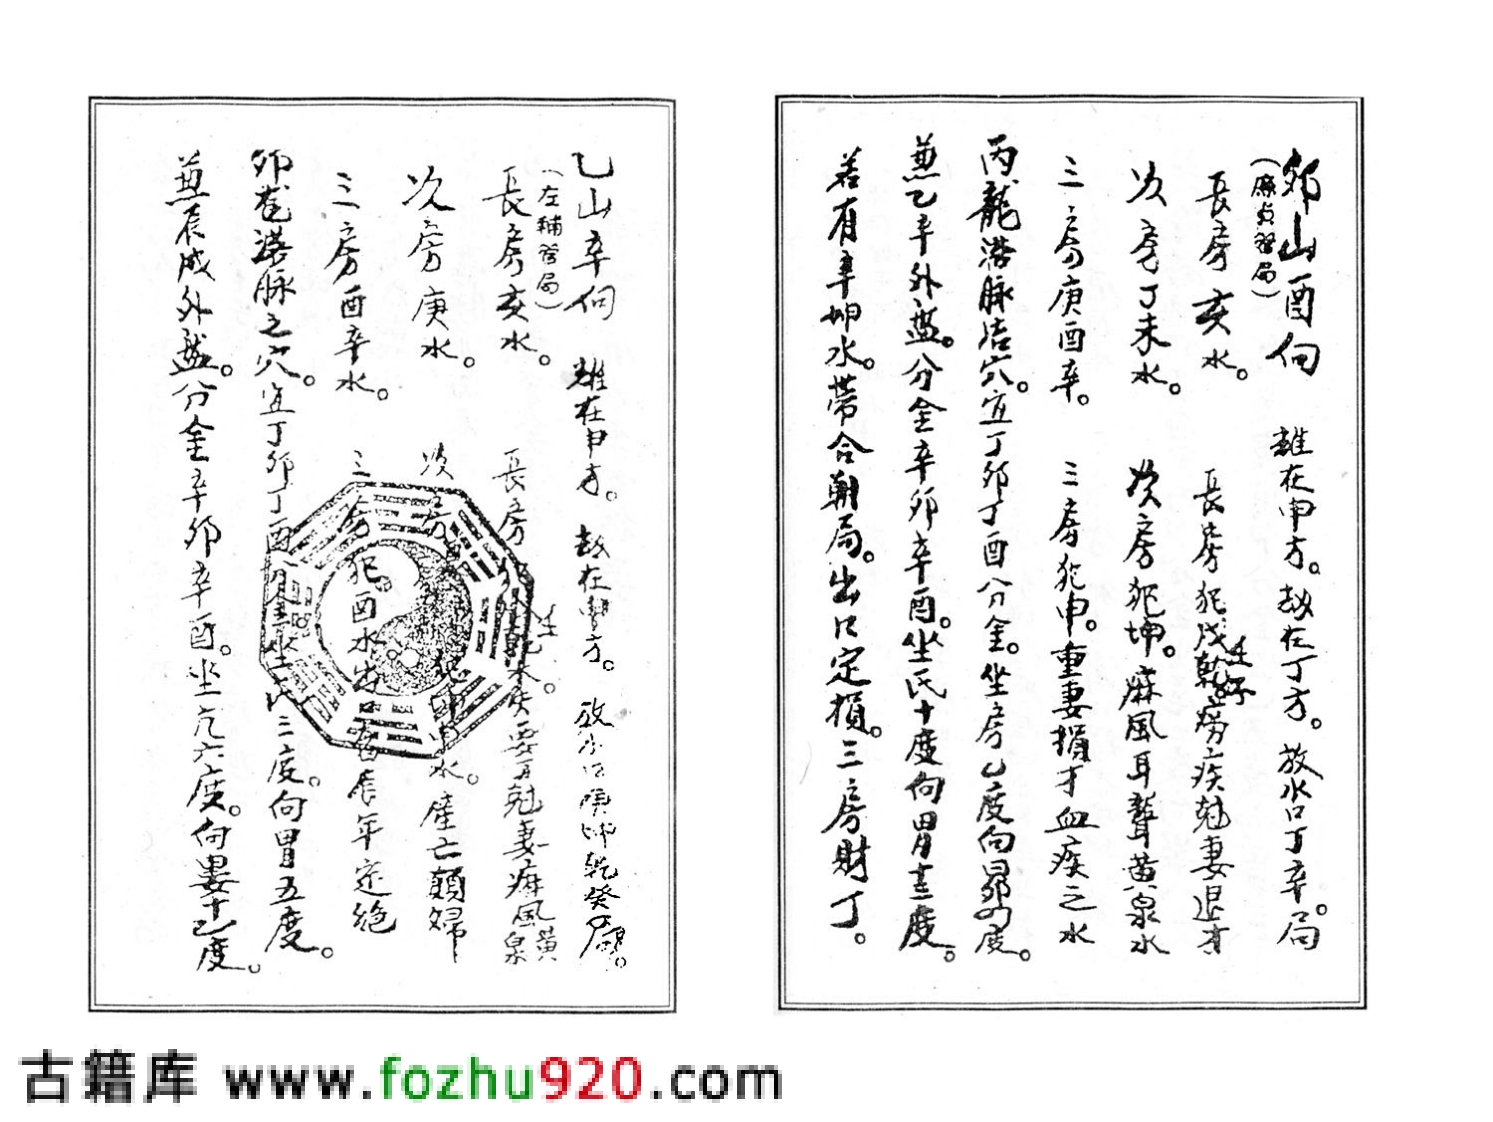 卯山酉向 雖在申方。劫在丁方。放水口丁辛。局
(廉貞管局)
長房亥水。 長房犯戌乾壬癆疾尅妻退才
次房丁未水。 次房犯坤。麻風耳聾黃泉水
三房庚酉辛。 三房犯申。重妻損才血疾之水
丙龍落脉结穴。宜丁卯丁酉分金。坐房乙度向昴四度。
兼乙辛外盤。分金辛卯辛酉。坐氐十度向胃十三度。
若有辛坤水。带合朝局。出口定損。三房財丁。
乙山辛向 雖在申方。劫在 方。放水口庚坤乾癸局。
(左輔管局)
長房亥水。 長房犯 乾 疾 尅妻麻風黃泉
次房庚水。 次房 犯坤申水。產亡顛婦
三房酉辛水。 三房犯酉水 辰年定絕
卯龍落脉之穴。宜丁卯丁酉 坐氐三度。向胃五度。
兼辰戌外盤。分金辛卯辛酉。坐亢六度。向婁十乙度。
古籍库 www.fozhu920.com